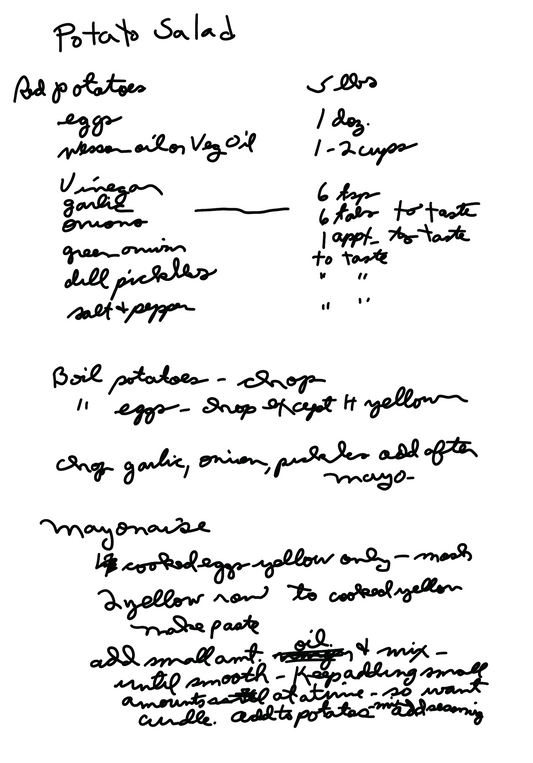 Potato Salad
Red potatoes 5 lbs
eggs 1 doz.
Wesson oil or Veg Oil 1-2 cups
Vinegar 6 tsp
garlic 6 tabs to taste
onions 1 appt to taste
green onion to taste
dill pickles " "
salt + pepper " "
Boil potatoes - chop
" eggs - chop except 4 yellow
chop garlic, onion, pickles add after
mayo-
Mayonaise
4 cooked eggs yellow only - mash
2 yellow raw to cooked yellow
make paste
add small amt. oil & mix -
until smooth - Keep adding small
amounts at a time - so wont
curdle. add to potatoes add seasoning